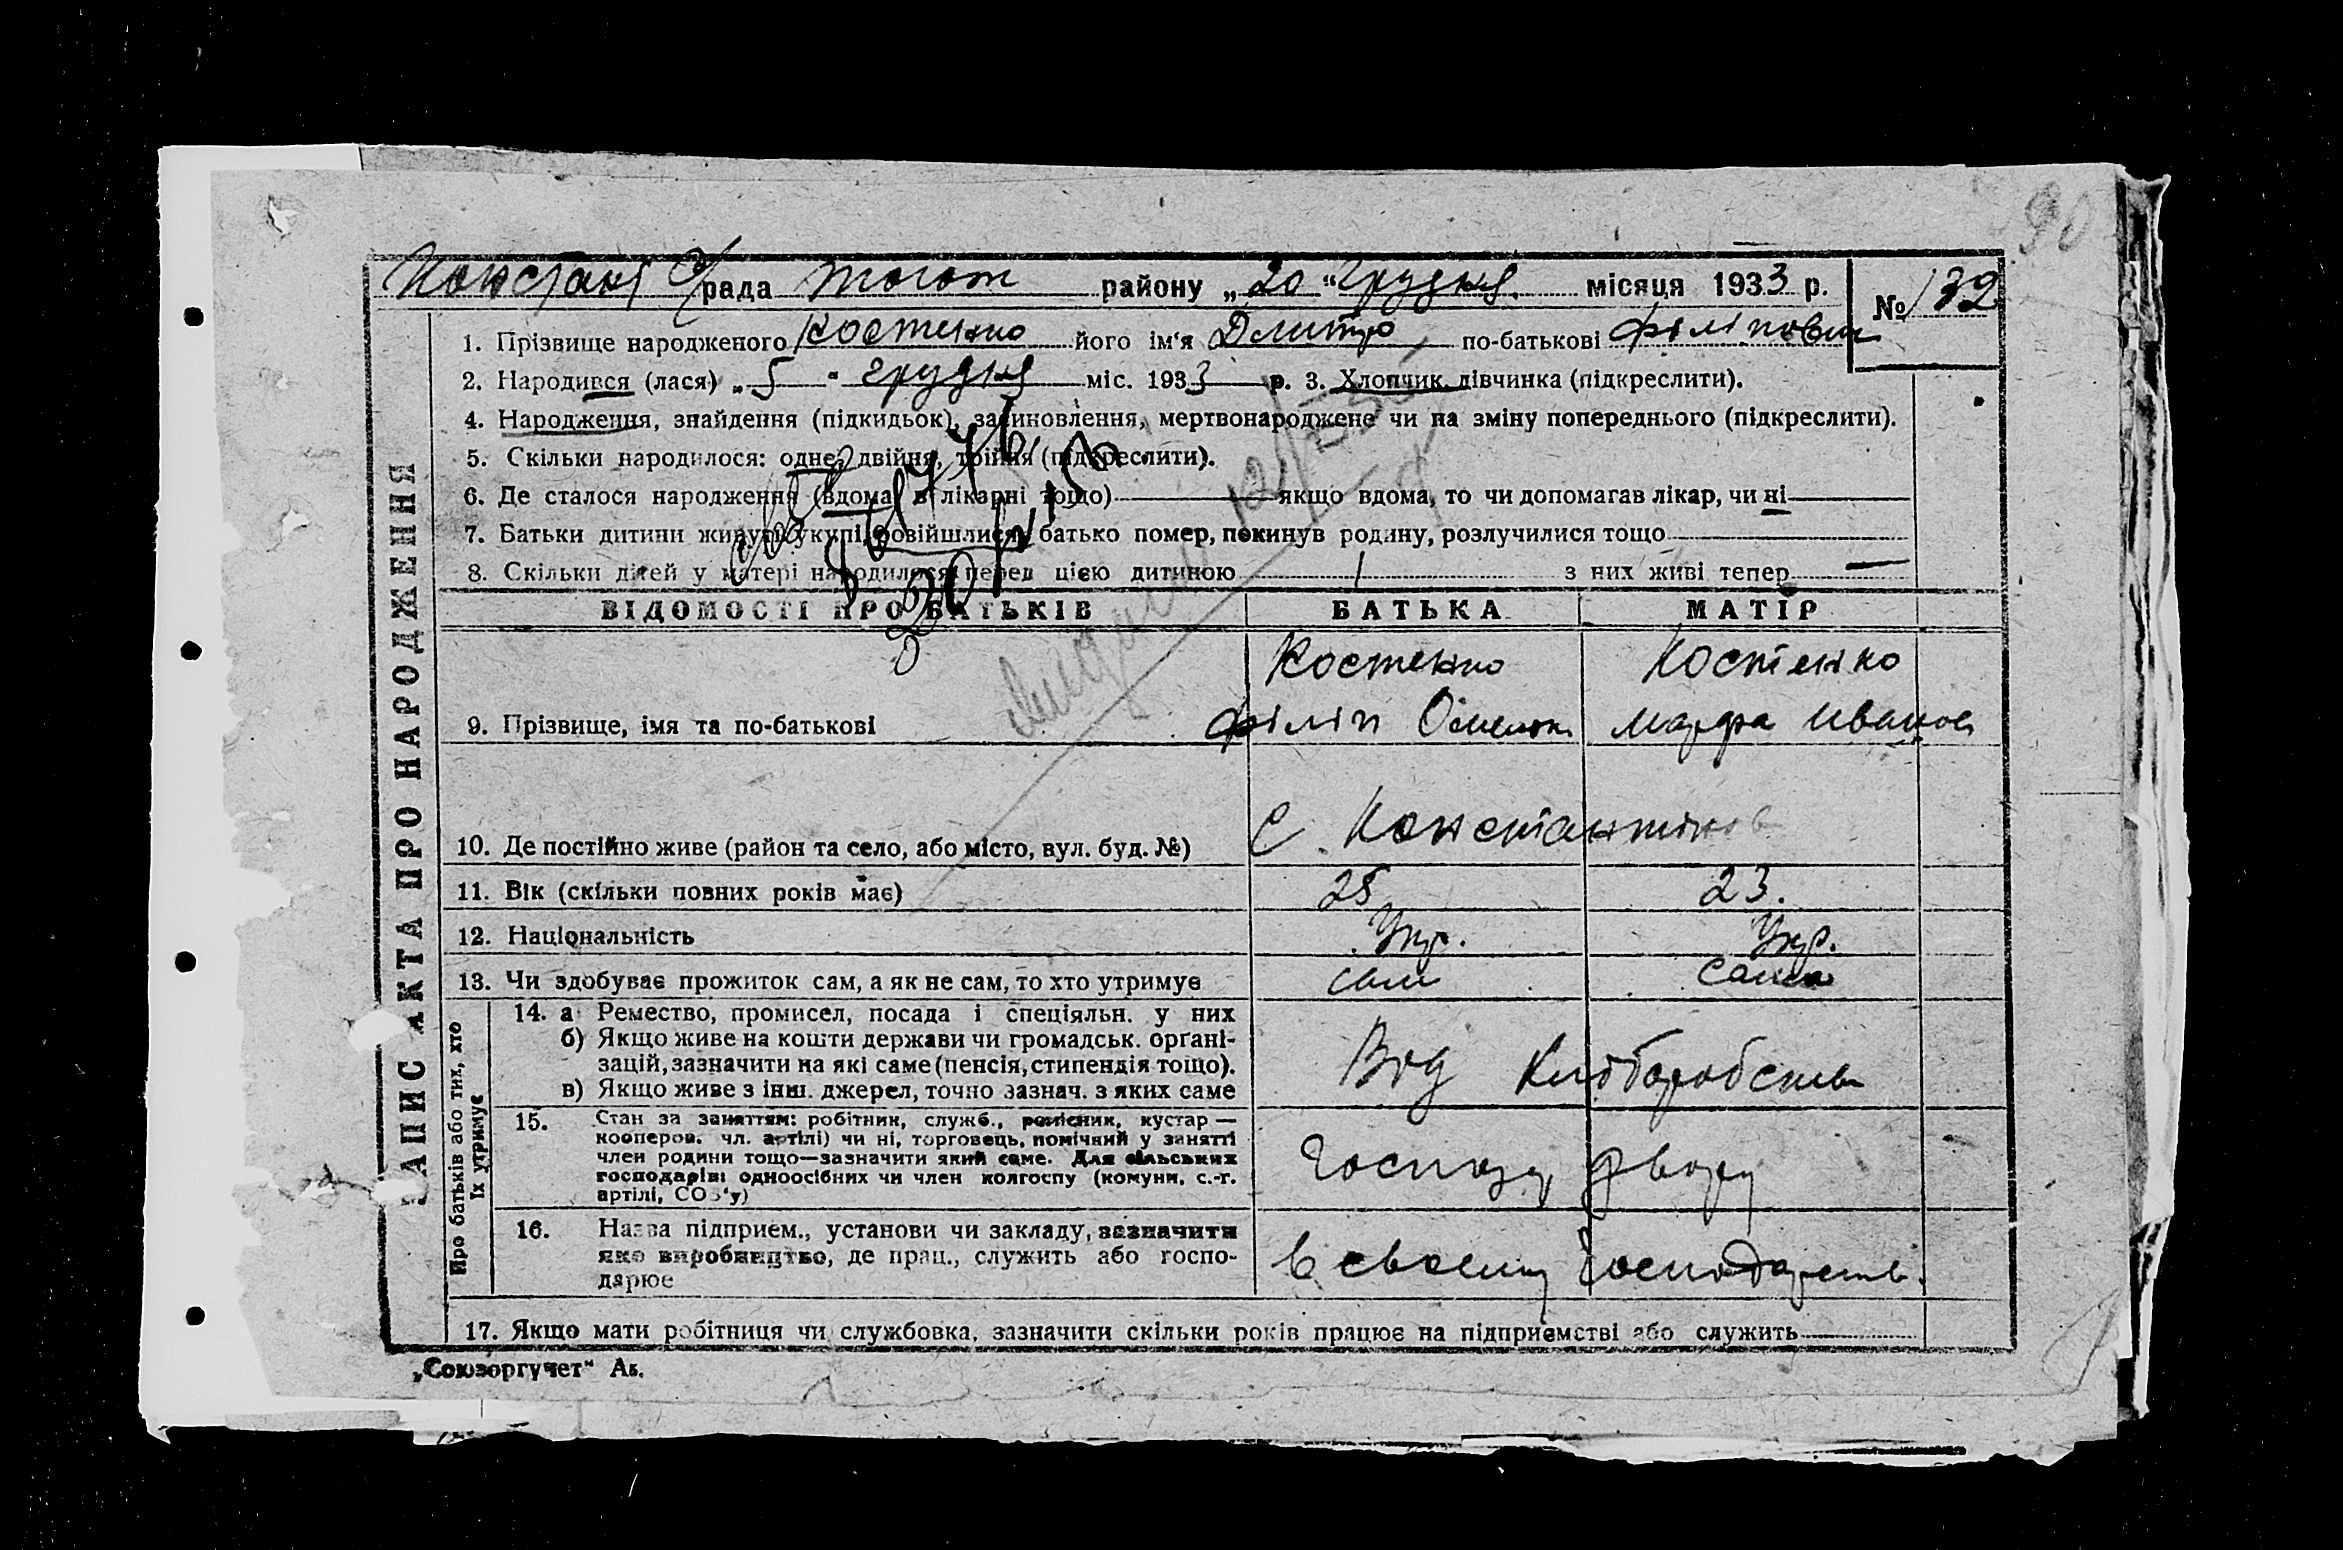 90
Констант с/рада район району „20“ Грудня місяця 1933 р. № 132
ЗАПИС АКТА ПРО НАРОДЖЕННЯ
1. Прізвище народженого Костенко його ім'я Дмитро по-батькові Філіпович
2. Народився (лася) „5“ грудня міс. 1933 р. 3. Хлопчик, дівчинка (підкреслити).
4. Народження, знайдення (підкидьок), засиновлення, мертвонароджене чи на зміну попереднього (підкреслити).
5. Скільки народилося: одне, двійня, трійня (підкреслити).
6. Де сталося народження (вдома, в лікарні тощо) якщо вдома, то чи допомагав лікар, чи ні
7. Батьки дитини живуть укупі, розвійшлися, батько помер, покинув родину, розлучилися тощо
8. Скільки дітей у матері народилося перед цією дитиною 1 з них живі тепер —
ВІДОМОСТІ ПРО БАТЬКІВ БАТЬКА МАТІР
Костенко Костенко
9. Прізвище, імя та по-батькові Філіп Марфа Иванов
10. Де постійно живе (район та село, або місто, вул. буд. №) С. Константинов
11. Вік (скільки повних років має) 25 23.
12. Національність Укр. Укр.
13. Чи здобуває прожиток сам, а як не сам, то хто утримує сам сама
Про батьків або тих, хто
їх утримує
14. а Ремество, промисел, посада і спеціяльн. у них
б) Якщо живе на кошти держави чи громадськ. орґані-
зацій, зазначити на які саме (пенсія, стипендія тощо).
в) Якщо живе з інш. джерел, точно зазнач. з яких саме
Від Хліборобства
15. Стан за заняттям: робітник, служб., ремісник, кустар —
кооперов. чл. артілі) чи ні, торговець, помічний у занятті
член родини тощо—зазначити який саме. Для сільських
господарів: одноосібних чи член колгоспу (комуни, с.-г.
артілі, СОЗ'у)
Господ, двору
16. Назва підприєм., установи чи закладу, зазначити
яке виробництво, де прац., служить або госпо-
дарює
в своему господарстві.
17. Якщо мати робітниця чи службовка, зазначити скільки років працює на підприємстві або служить
„Союзоргучет“